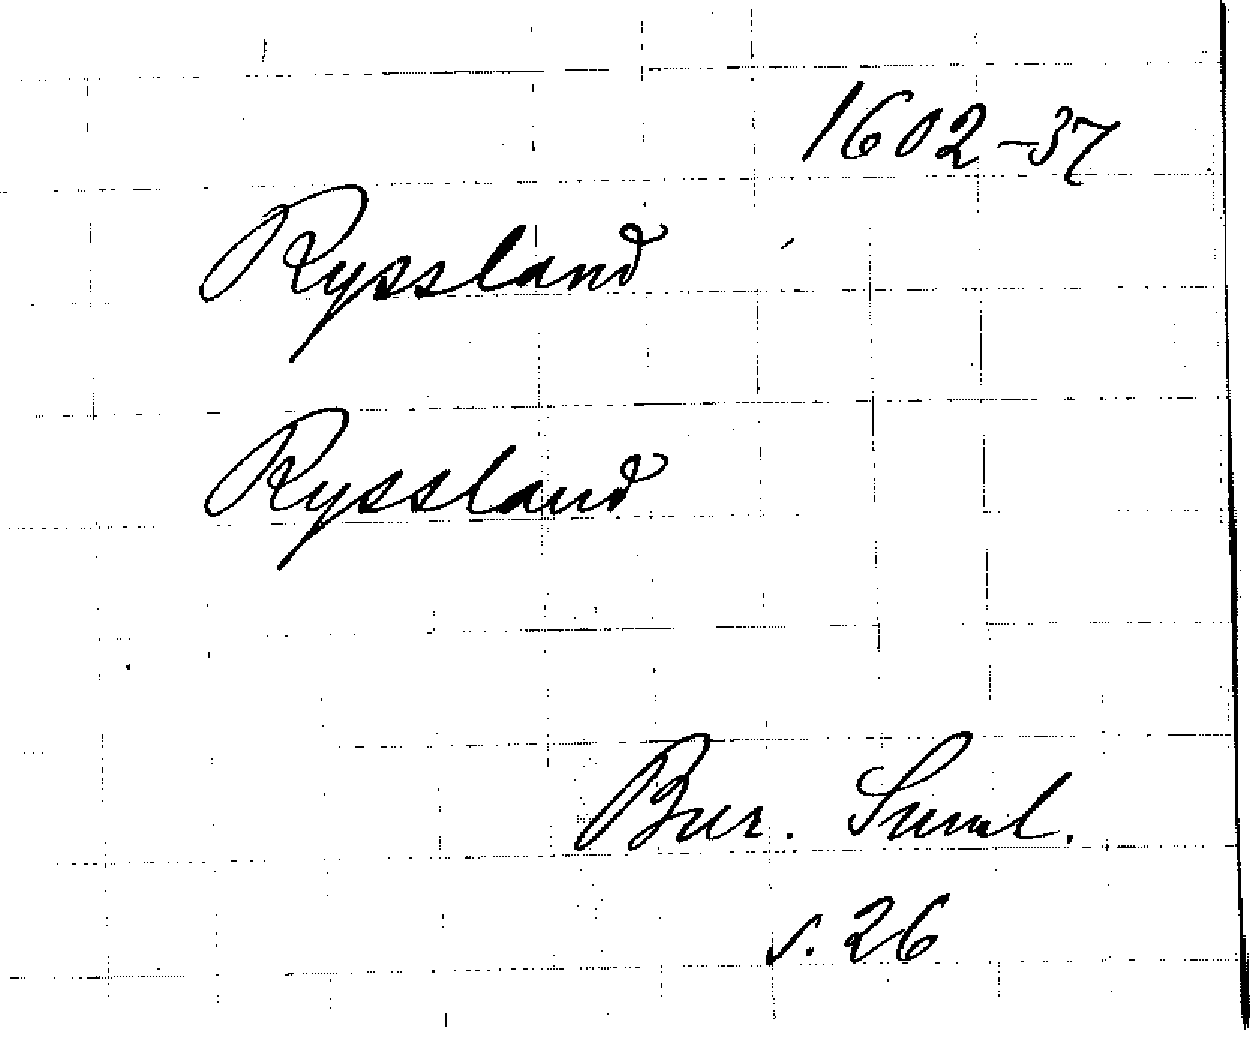 1602-37
Ryssland
Ryssland
Bur. Suml.
s. 26